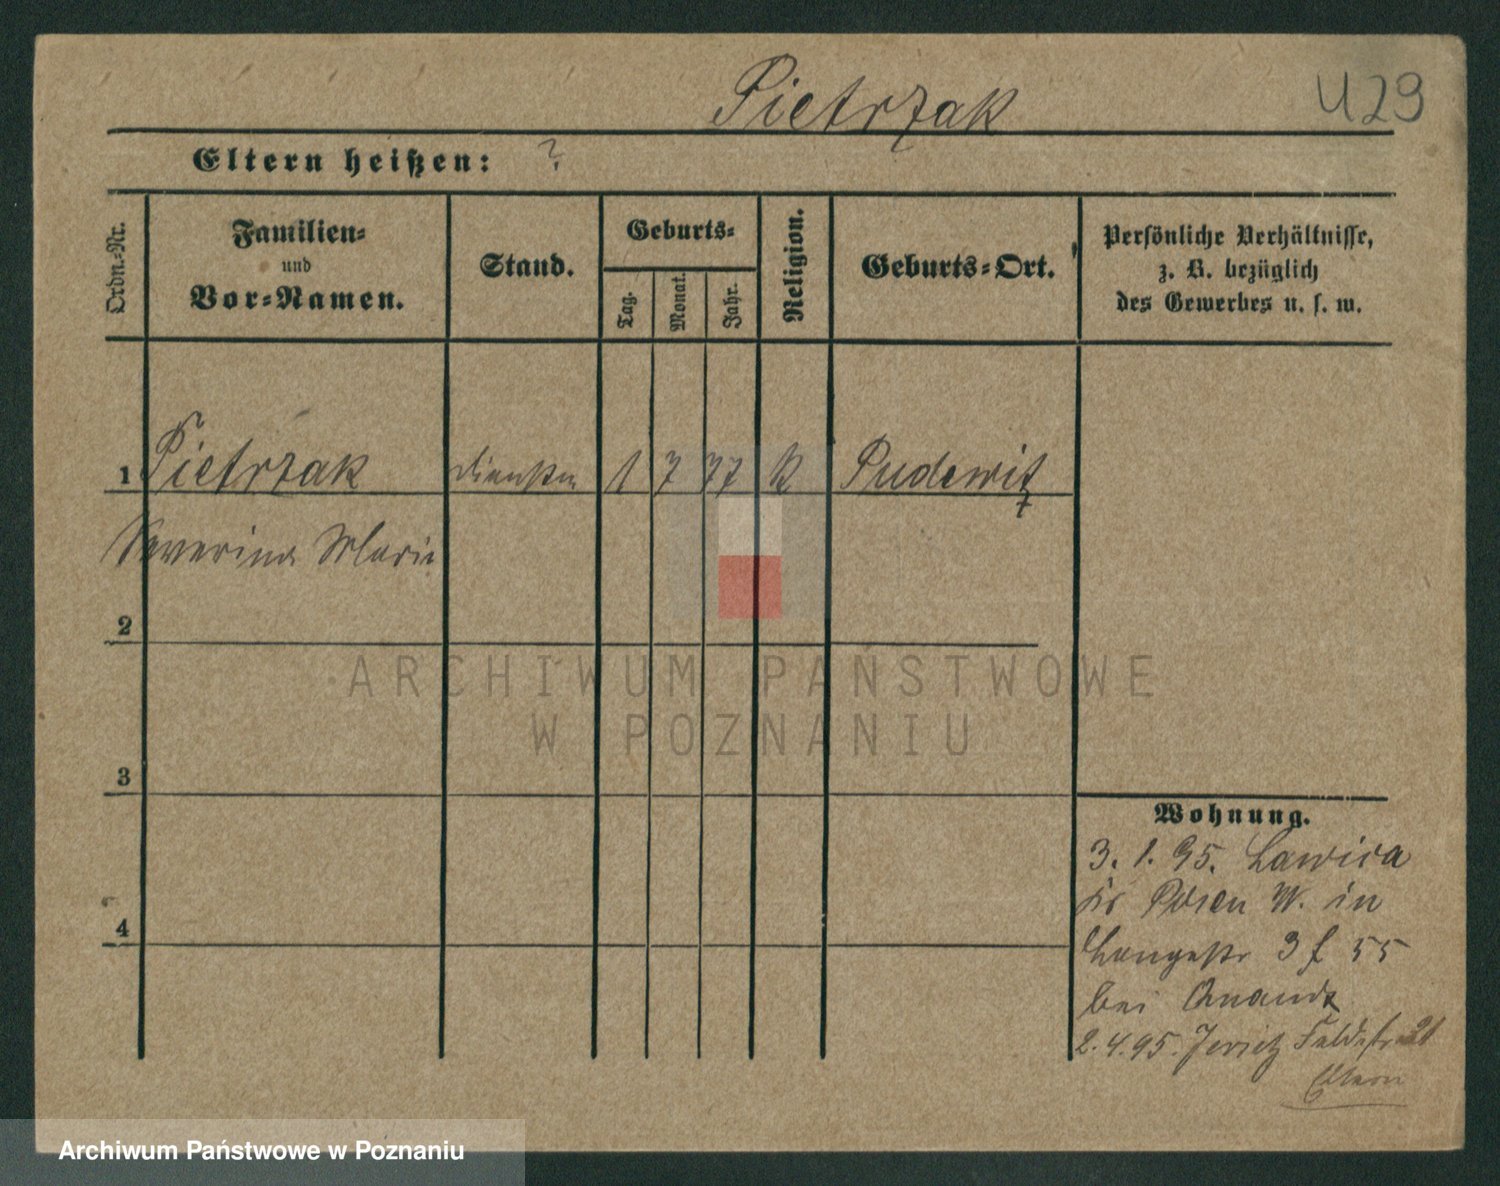 Pietrzak
U29
Eltern heißen: ?
Ordn.-Nr.
Familien-
und
Vor-Namen.
Stand.
Geburts-
Tag.
Monat.
Jahr.
Religion.
Geburts-Ort.
Persönliche Verhältnisse,
z. B. bezüglich
des Gewerbes u. s. w.
1 Pietrzak 1 7 77 k Pudewitz
Severina Marie
2
3
4
Wohnung.
3. 1. 95. Lawica
Kr Posen W. in
Langestr 3 f 55
bei
2. 4. 95. Jersitz Feldstr 21
Eltern
ARCHIWUM PAŃSTWOWE
W POZNANIU
Archiwum Państwowe w Poznaniu